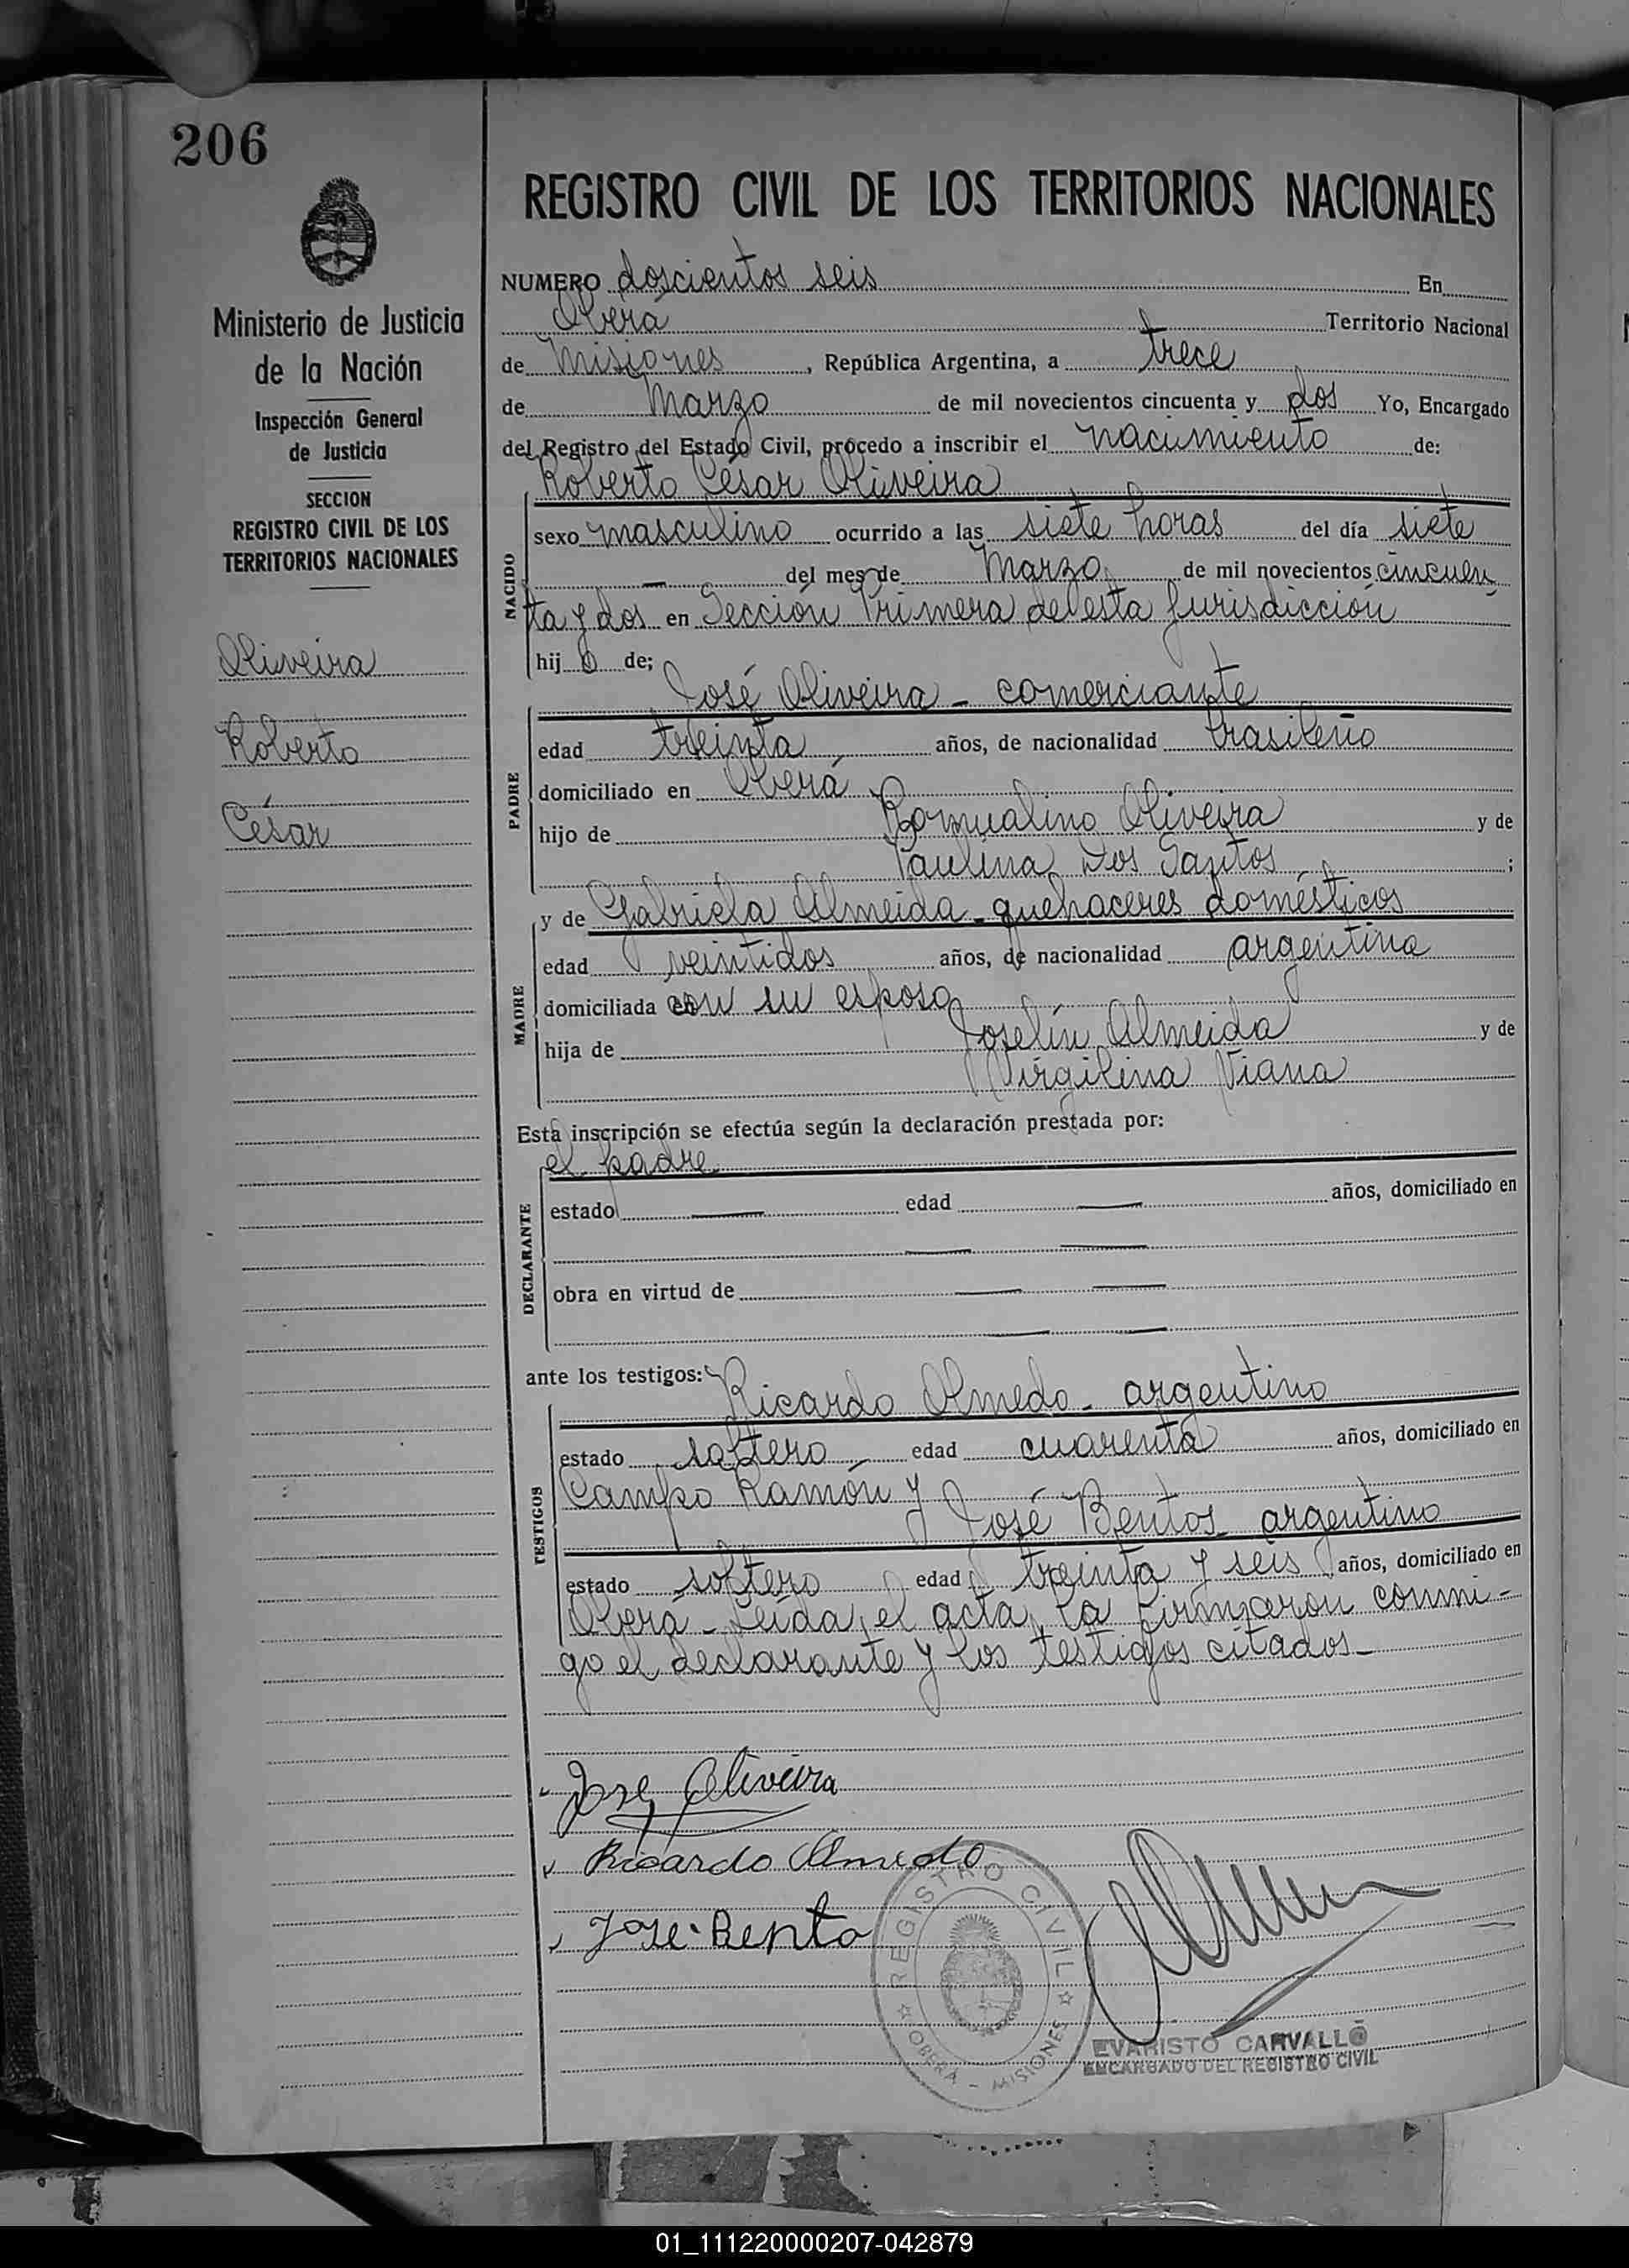 206
Ministerio de Justicia
de la Nación
Inspección General
de Justicia
SECCION
REGISTRO CIVIL DE LOS
TERRITORIOS NACIONALES
Oliveira
Roberto
César
REGISTRO CIVIL DE LOS TERRITORIOS NACIONALES
NUMERO doscientos seis En
Oberá Territorio Nacional
de Misiones, República Argentina, a trece
de Marzo de mil novecientos cincuenta y dos Yo, Encargado
del Registro del Estado Civil, procedo a inscribir el nacimiento de:
Roberto César Oliveira
NACIDO
sexo masculino ocurrido a las siete horas del día siete
— del mes de Marzo de mil novecientos cincuen
ta y dos en Sección Primera de esta jurisdicción
hij o de;
José Oliveira - comerciante
PADRE
edad treinta años, de nacionalidad brasileño
domiciliado en Oberá
hijo de Romualino Oliveira y de
Paulina Dos Santos ;
y de Gabriela Almeida - quehaceres domésticos
MADRE
edad veintidos años, de nacionalidad argentina
domiciliada con su esposo
hija de Joselín Almeida y de
Virgilina Viana
Esta inscripción se efectúa según la declaración prestada por:
el padre
DECLARANTE
estado — edad — años, domiciliado en
— —
obra en virtud de — —
— —
ante los testigos: Ricardo Olmedo - argentino
TESTIGOS
estado soltero edad cuarenta años, domiciliado en
Campo Ramón y
José Bentos - argentino
estado soltero edad treinta y seis años, domiciliado en
Oberá - Leída el acta, la firmaron conmi-
go el declarante y los testigos citados -
Jose Oliveira
Ricardo Olmedo
Jose Bento
REGISTRO CIVIL
OBERÁ - MISIONES
EVARISTO CARVALLO
ENCARGADO DEL REGISTRO CIVIL
01_111220000207-042879